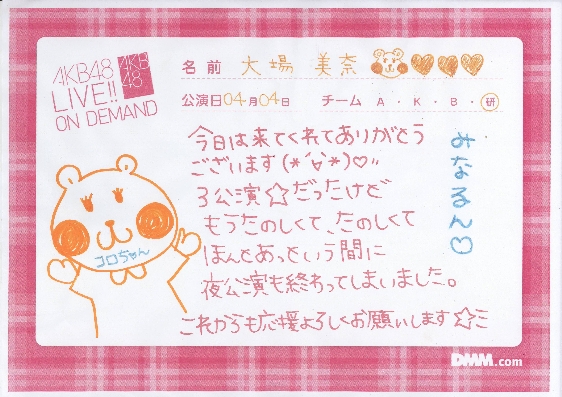 AKB48
LIVE!!
ON DEMAND
AKB
48
名前 大場 美奈
公演日 04月04日 チーム A・K・B・研
今日は来てくれてありがとう
ございます(*´∀`*)♡〃
3公演☆だったけど
もうたのしくて、たのしくて
ほんとあっという間に
夜公演も終わってしまいました。
これからも応援よろしくお願いします☆ミ
みなるん♡
コロぢゃん
DMM.com